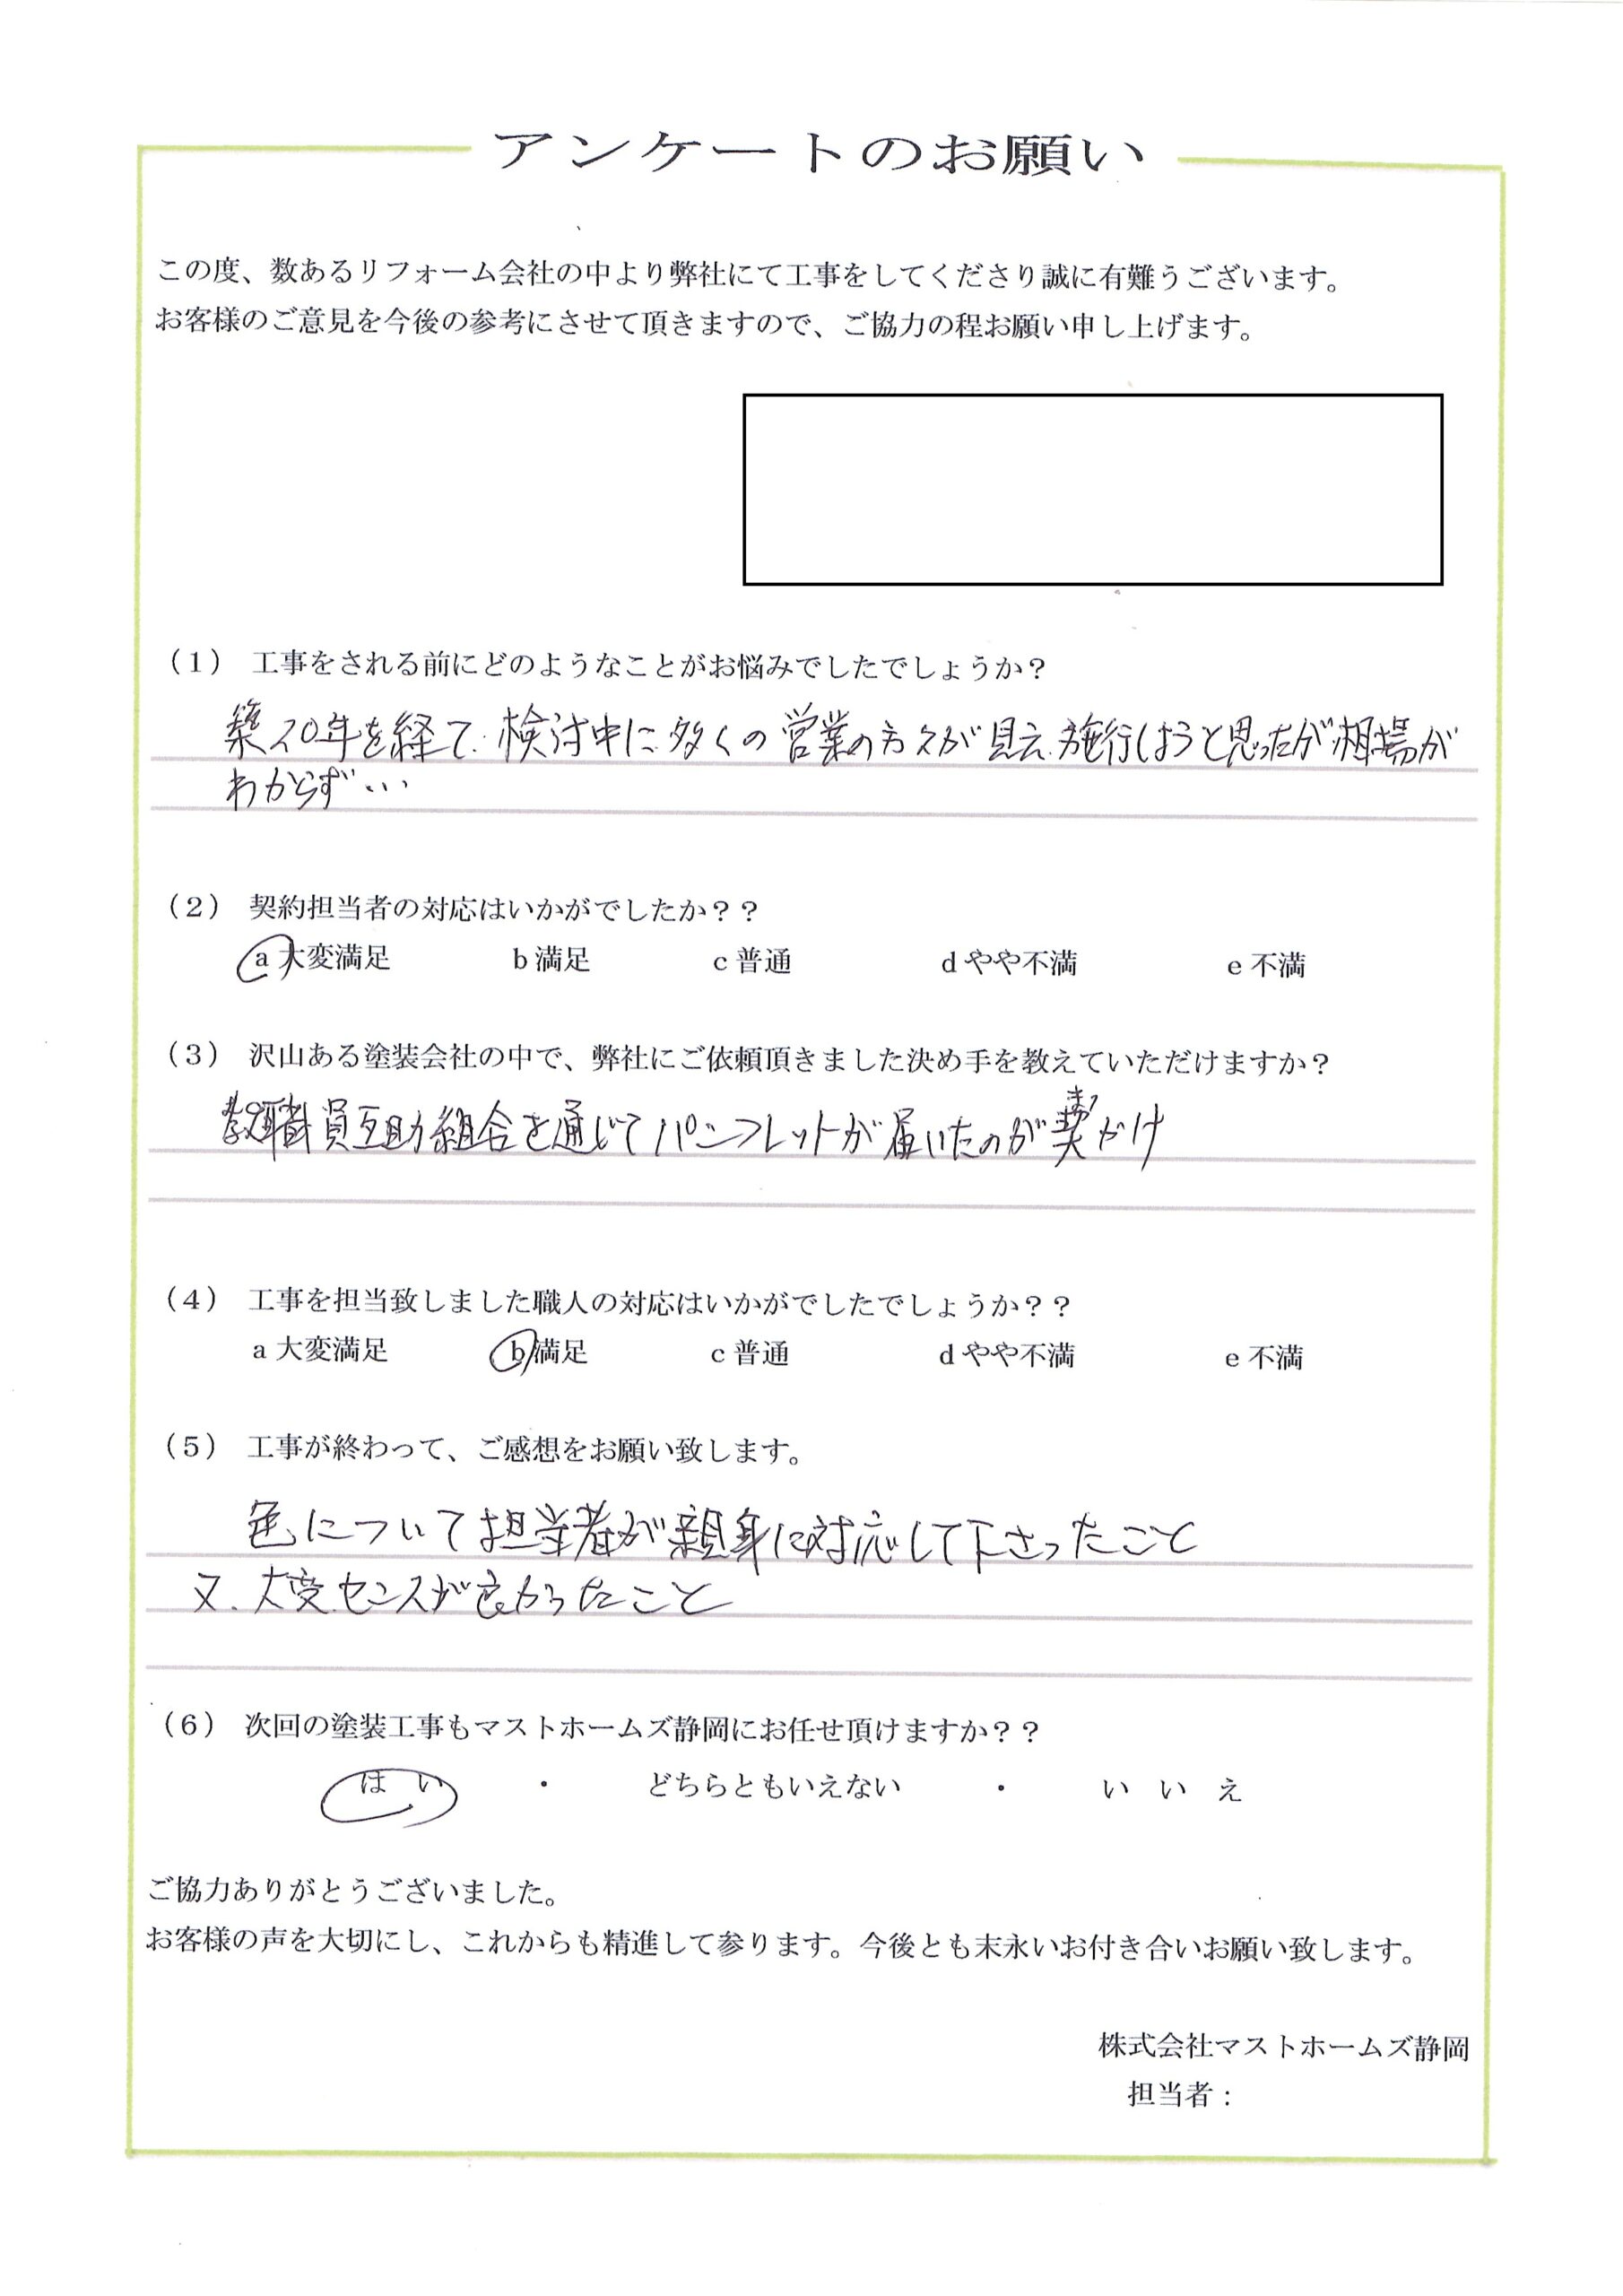 アンケートのお願い
この度、数あるリフォーム会社の中より弊社にて工事をしてくださり誠に有難うございます。
お客様のご意見を今後の参考にさせて頂きますので、ご協力の程お願い申し上げます。
（1） 工事をされる前にどのようなことがお悩みでしたでしょうか？
築20年を経て、検討中に、多くの営業の方々が見え、施行しようと思ったが相場が
わからず…
（2） 契約担当者の対応はいかがでしたか？？
a 大変満足 b 満足 c 普通 d やや不満 e 不満
（3） 沢山ある塗装会社の中で、弊社にご依頼頂きました決め手を教えていただけますか？
教職員互助組合を通じてパンフレットが届いたのが契かけ
（4） 工事を担当致しました職人の対応はいかがでしたでしょうか？？
a 大変満足 b 満足 c 普通 d やや不満 e 不満
（5） 工事が終わって、ご感想をお願い致します。
色について担当者が親身に対応して下さったこと
又、大変センスが良かったこと
（6） 次回の塗装工事もマストホームズ静岡にお任せ頂けますか？？
は い ・ どちらともいえない ・ い い え
ご協力ありがとうございました。
お客様の声を大切にし、これからも精進して参ります。今後とも末永いお付き合いお願い致します。
株式会社マストホームズ静岡
担当者：